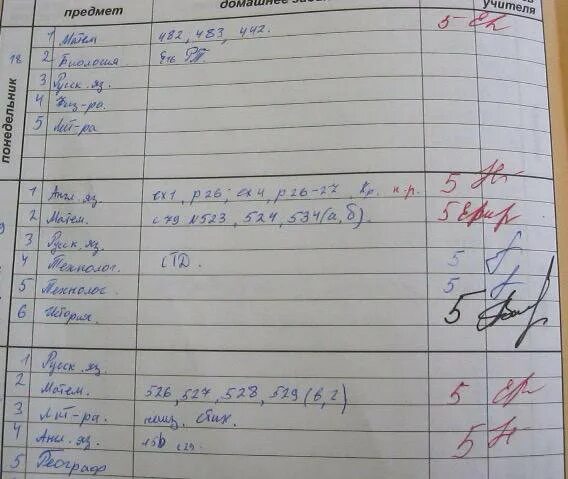 предмет домашнее зада учителя
понедельник
18
1 Матем 482, 483, 442. 5
2 Биология РТ.
3 Русск. яз.
4 Физ-ра.
5 Лит-ра
1 Англ. яз. ex 1, p 26; ex 4, p 26-27 к.р. 5
2 Матем. с 79 №523, 524, 534 (а, б). 5
3 Русск. яз.
4 Технолог. СТД. 5
5 Технолог. 5
6 История. 5
1 Русск. яз.
2 Матем. 526, 527, 528, 529 (в, г) 5
3 Лит-ра. наиз. стих.
4 Англ. яз. 5
5 Географ